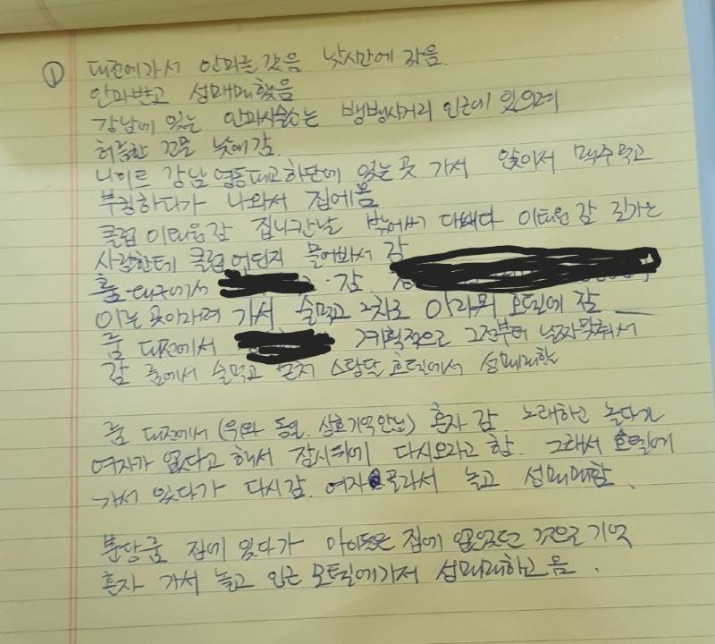 ① 대전에가서 안마를 갔음 낮시간에 갔음
안마받고 성매매했음
강남에 있는 안마시술소는 뱅뱅사거리 인근에 있으며
허름한 건물 낮에감.
나이트 강남 영동대교하단에 있는 곳 가서 앉아서 맥주먹고
부킹하다가 나와서 집에옴
클럽 이태원감 집나간날 밖에서 다 이태원감 길가는
사람한테 클럽 어딘지 물어봐서 감
룸 대구에서 감.
아는 곳이라며 가서 술먹고 2차로 모텔에 감
룸 대전에서 계획적으로 그전부터 날짜맞춰서
감 룸에서 술먹고 근처 호텔에서 성매매함

룸 대전에서 (위와 동일, 상호기억안남) 혼자 감. 노래하고 놀다가
여자가 없다고 해서 잠시뒤에 다시오라고 함. 그래서 호텔에
가서 있다가 다시감. 여자골라서 놀고 성매매함.

분당룸 집에 있다가 아이들은 집에 없었던 것으로 기억
혼자 가서 놀고 인근 모텔에가서 성매매하고 옴.